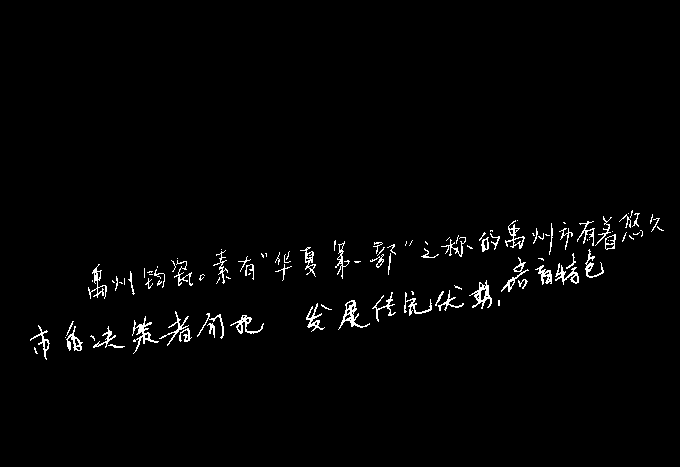 禹州钧瓷。素有“华夏第一都”之称的禹州市有着悠久
市的决策者们把 发展传统优势,培育特色